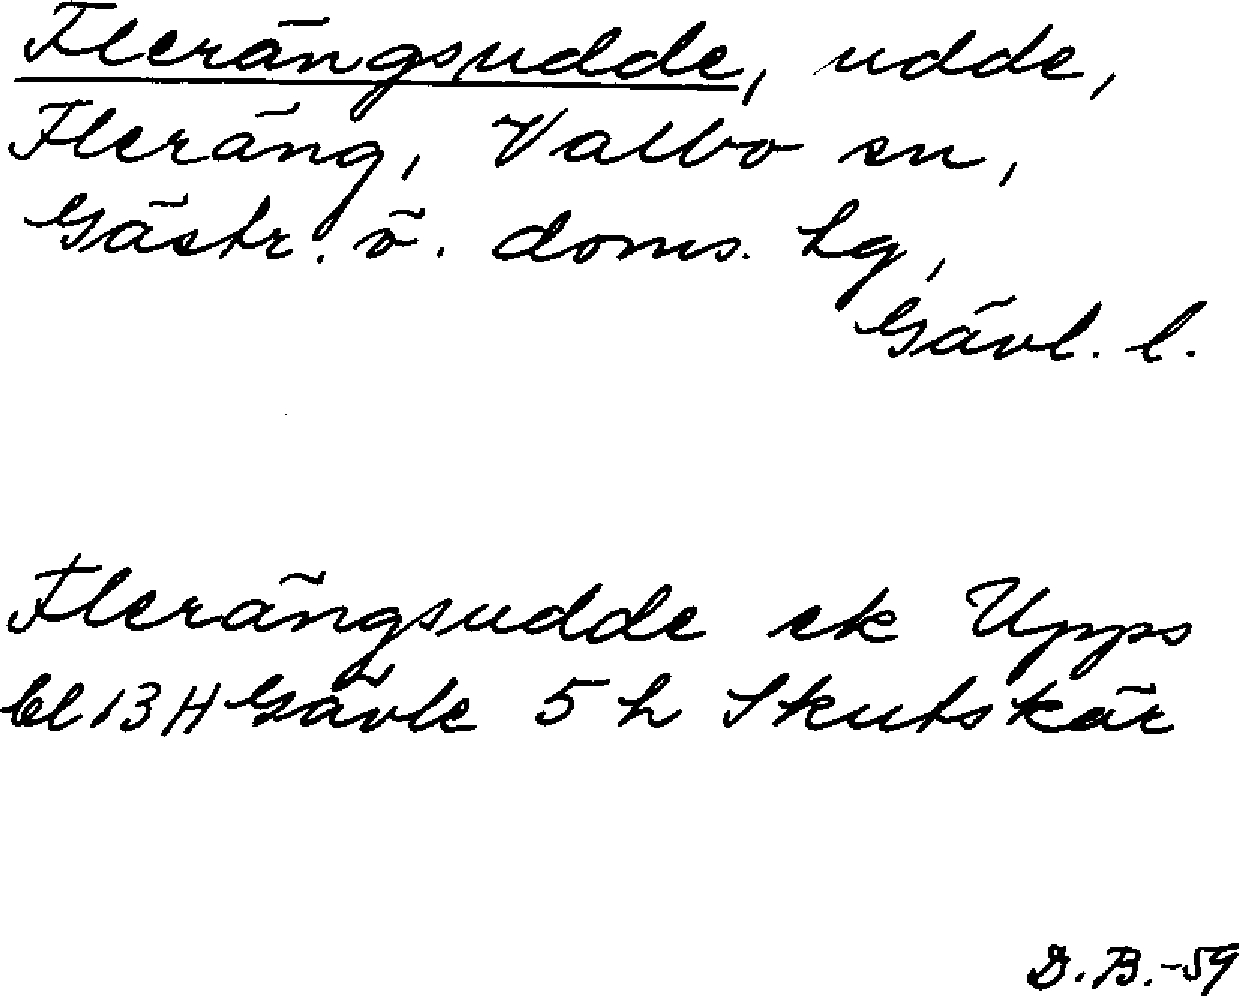 Flerängsudde, udde,
Fleräng, Valbo sn,
Gästr. ö. doms. hg,
Gävl. l.
Flerängsudde ek Upps
bl 13 H Gävle 5 h Skutskär
D.B.-59